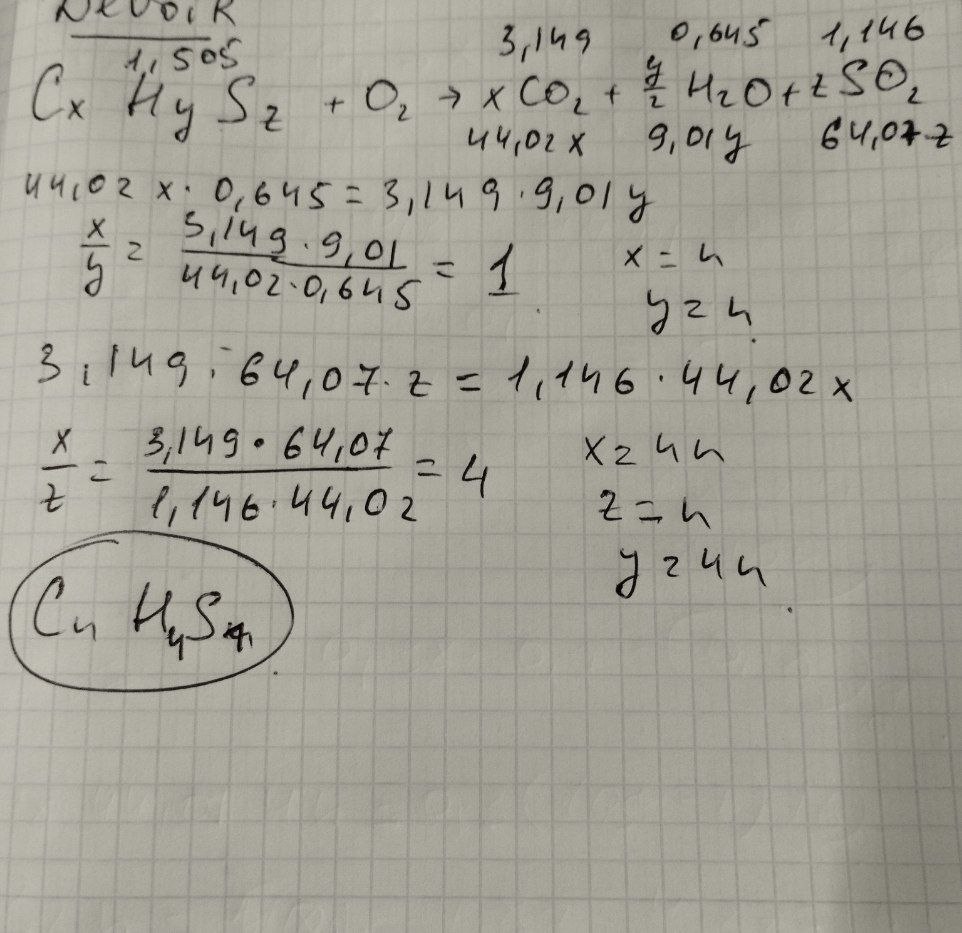 Devoir
1,505 3,149 0,645 1,146
CxHySz + O2 → xCO2 + y/2 H2O + zSO2
44,02x 9,01y 64,07z
44,02 x · 0,645 = 3,149 · 9,01y
x/y = 3,149 · 9,01 / 44,02 · 0,645 = 1 x = n
y = n
3,149 · 64,07 · z = 1,146 · 44,02x
x/z = 3,149 · 64,07 / 1,146 · 44,02 = 4 x = 4n
z = n
y = 4n
C4 H4S